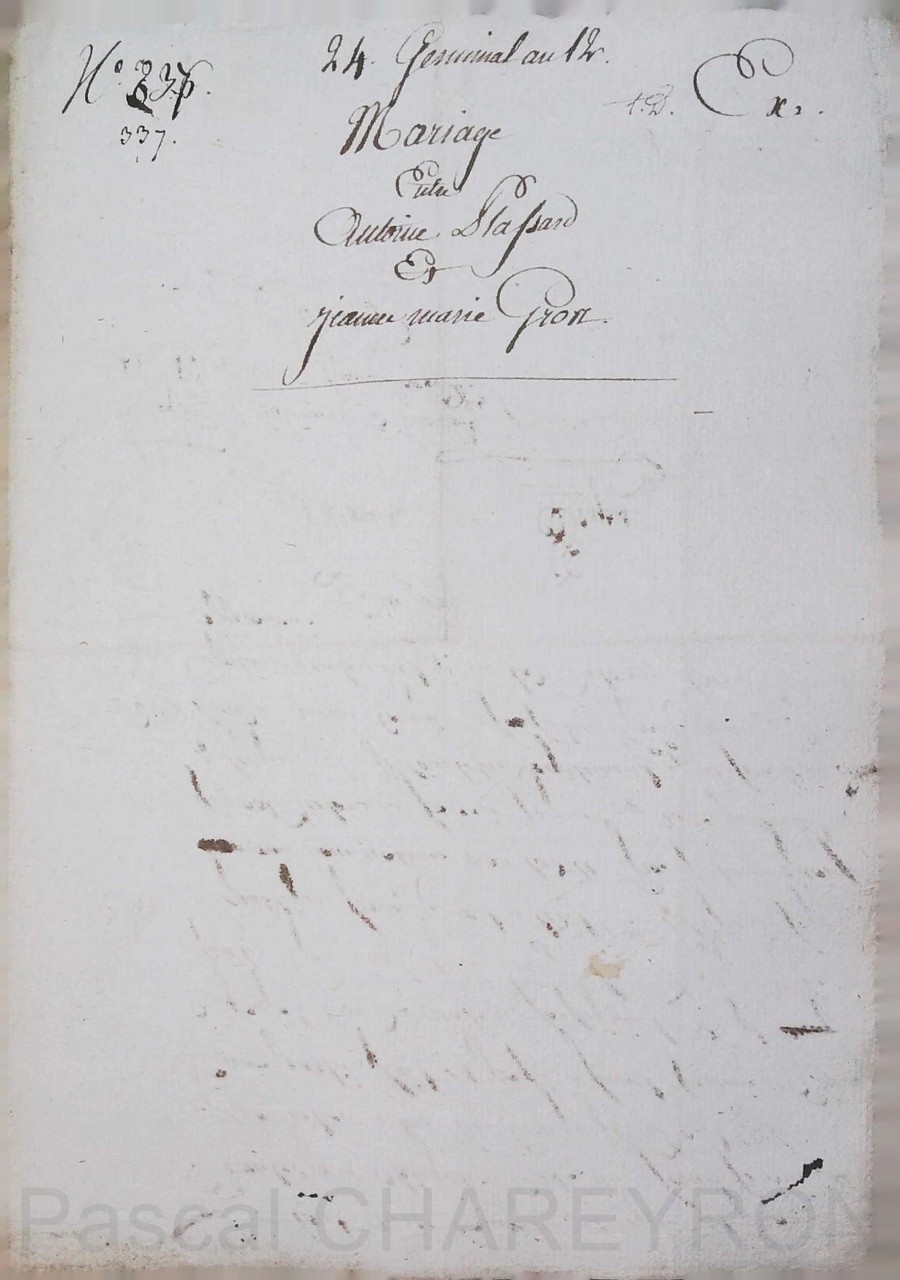 24. Germinal an 12.
N.° 337.
Ex.
337.
Mariage
Entre
Antoine Plassard
Et
jeanne marie Gron
Pascal CHAREYRON